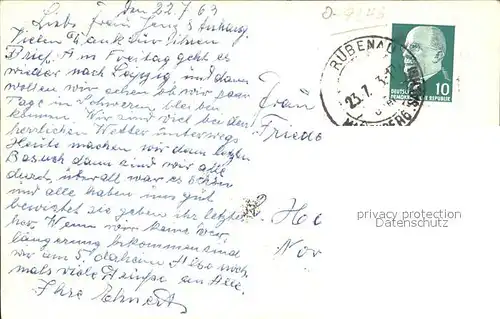 den 22.7.63
Liebe Frau
Vielen Dank für
Brief. Am Freitag geht es
wieder nach Leipzig und dann
wollen wir sehen ob wir paar
Tage in Schwerin bleiben
können. Wir sind viel bei dem
herrlichen Wetter unterwegs
Heute machen wir dann letzten
Besuch dann sind wir alle
durch, überall war es schön
und alle haben uns gut
bewirtet sie geben ihr letztes
her. Wenn wir keine Ver
längerung bekommen sind
wir am 5. daheim Also noch
mals viele Grüße an Alle.
Ihre
Frau
Frieda
Nor
RÜBENAU
23.7.
MARIENBERG
DEUTSCHE
DEMOKRATISCHE REPUBLIK
10
privacy protection
Datenschutz